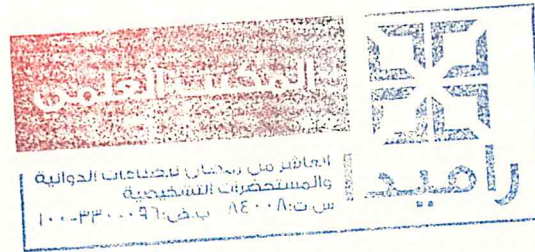 المكتب العلمى
راميدا
العاشر من رمضان للصناعات الدوائية
والمستحضرات التشخيصية
س.ت: ٨٤٠٠٨ ب.ض: ١٠٠-٣٣٠-٠٠٩٦